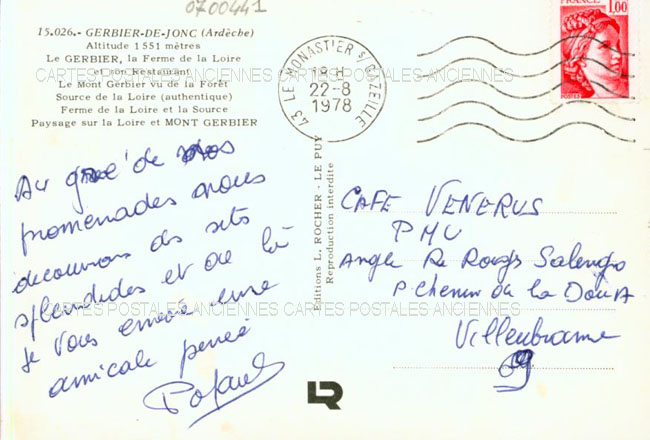 0700441
15.026.- GERBIER-DE-JONC (Ardèche)
Altitude 1 551 mètres
Le GERBIER, la Ferme de la Loire
et son Restaurant
Le Mont Gerbier vu de la Forêt
Source de la Loire (authentique)
Ferme de la Loire et la Source
Paysage sur la Loire et MONT GERBIER
CARTES POSTALES ANCIENNES CARTES POSTALES ANCIENNES
43 LE MONASTIER S/GAZEILLE
18 H
22-8
1978
FRANCE
1,00
POSTES
Au gré de nos
promenades nous
decouvrons des sits
splendides et de là
je vous envoie une
amicale pensée
Editions L. ROCHER - LE PUY
Reproduction interdite
CAFE VENERUS
PMU
Angle R Roger Salengro
P Chemin de la DOUA
Villeurbanne
69
CARTES POSTALES ANCIENNES CARTES POSTALES ANCIENNES
LR